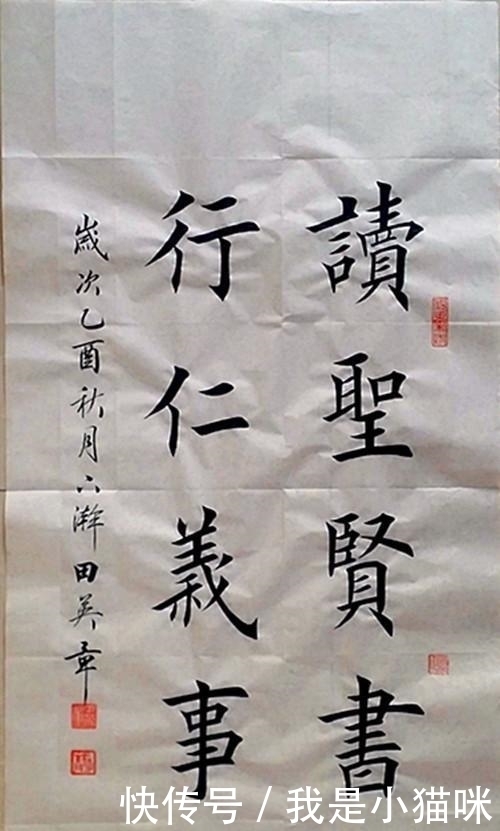 讀聖賢書
行仁義事
歲次乙酉秋月六澣田英章
快传号/我是小猫咪